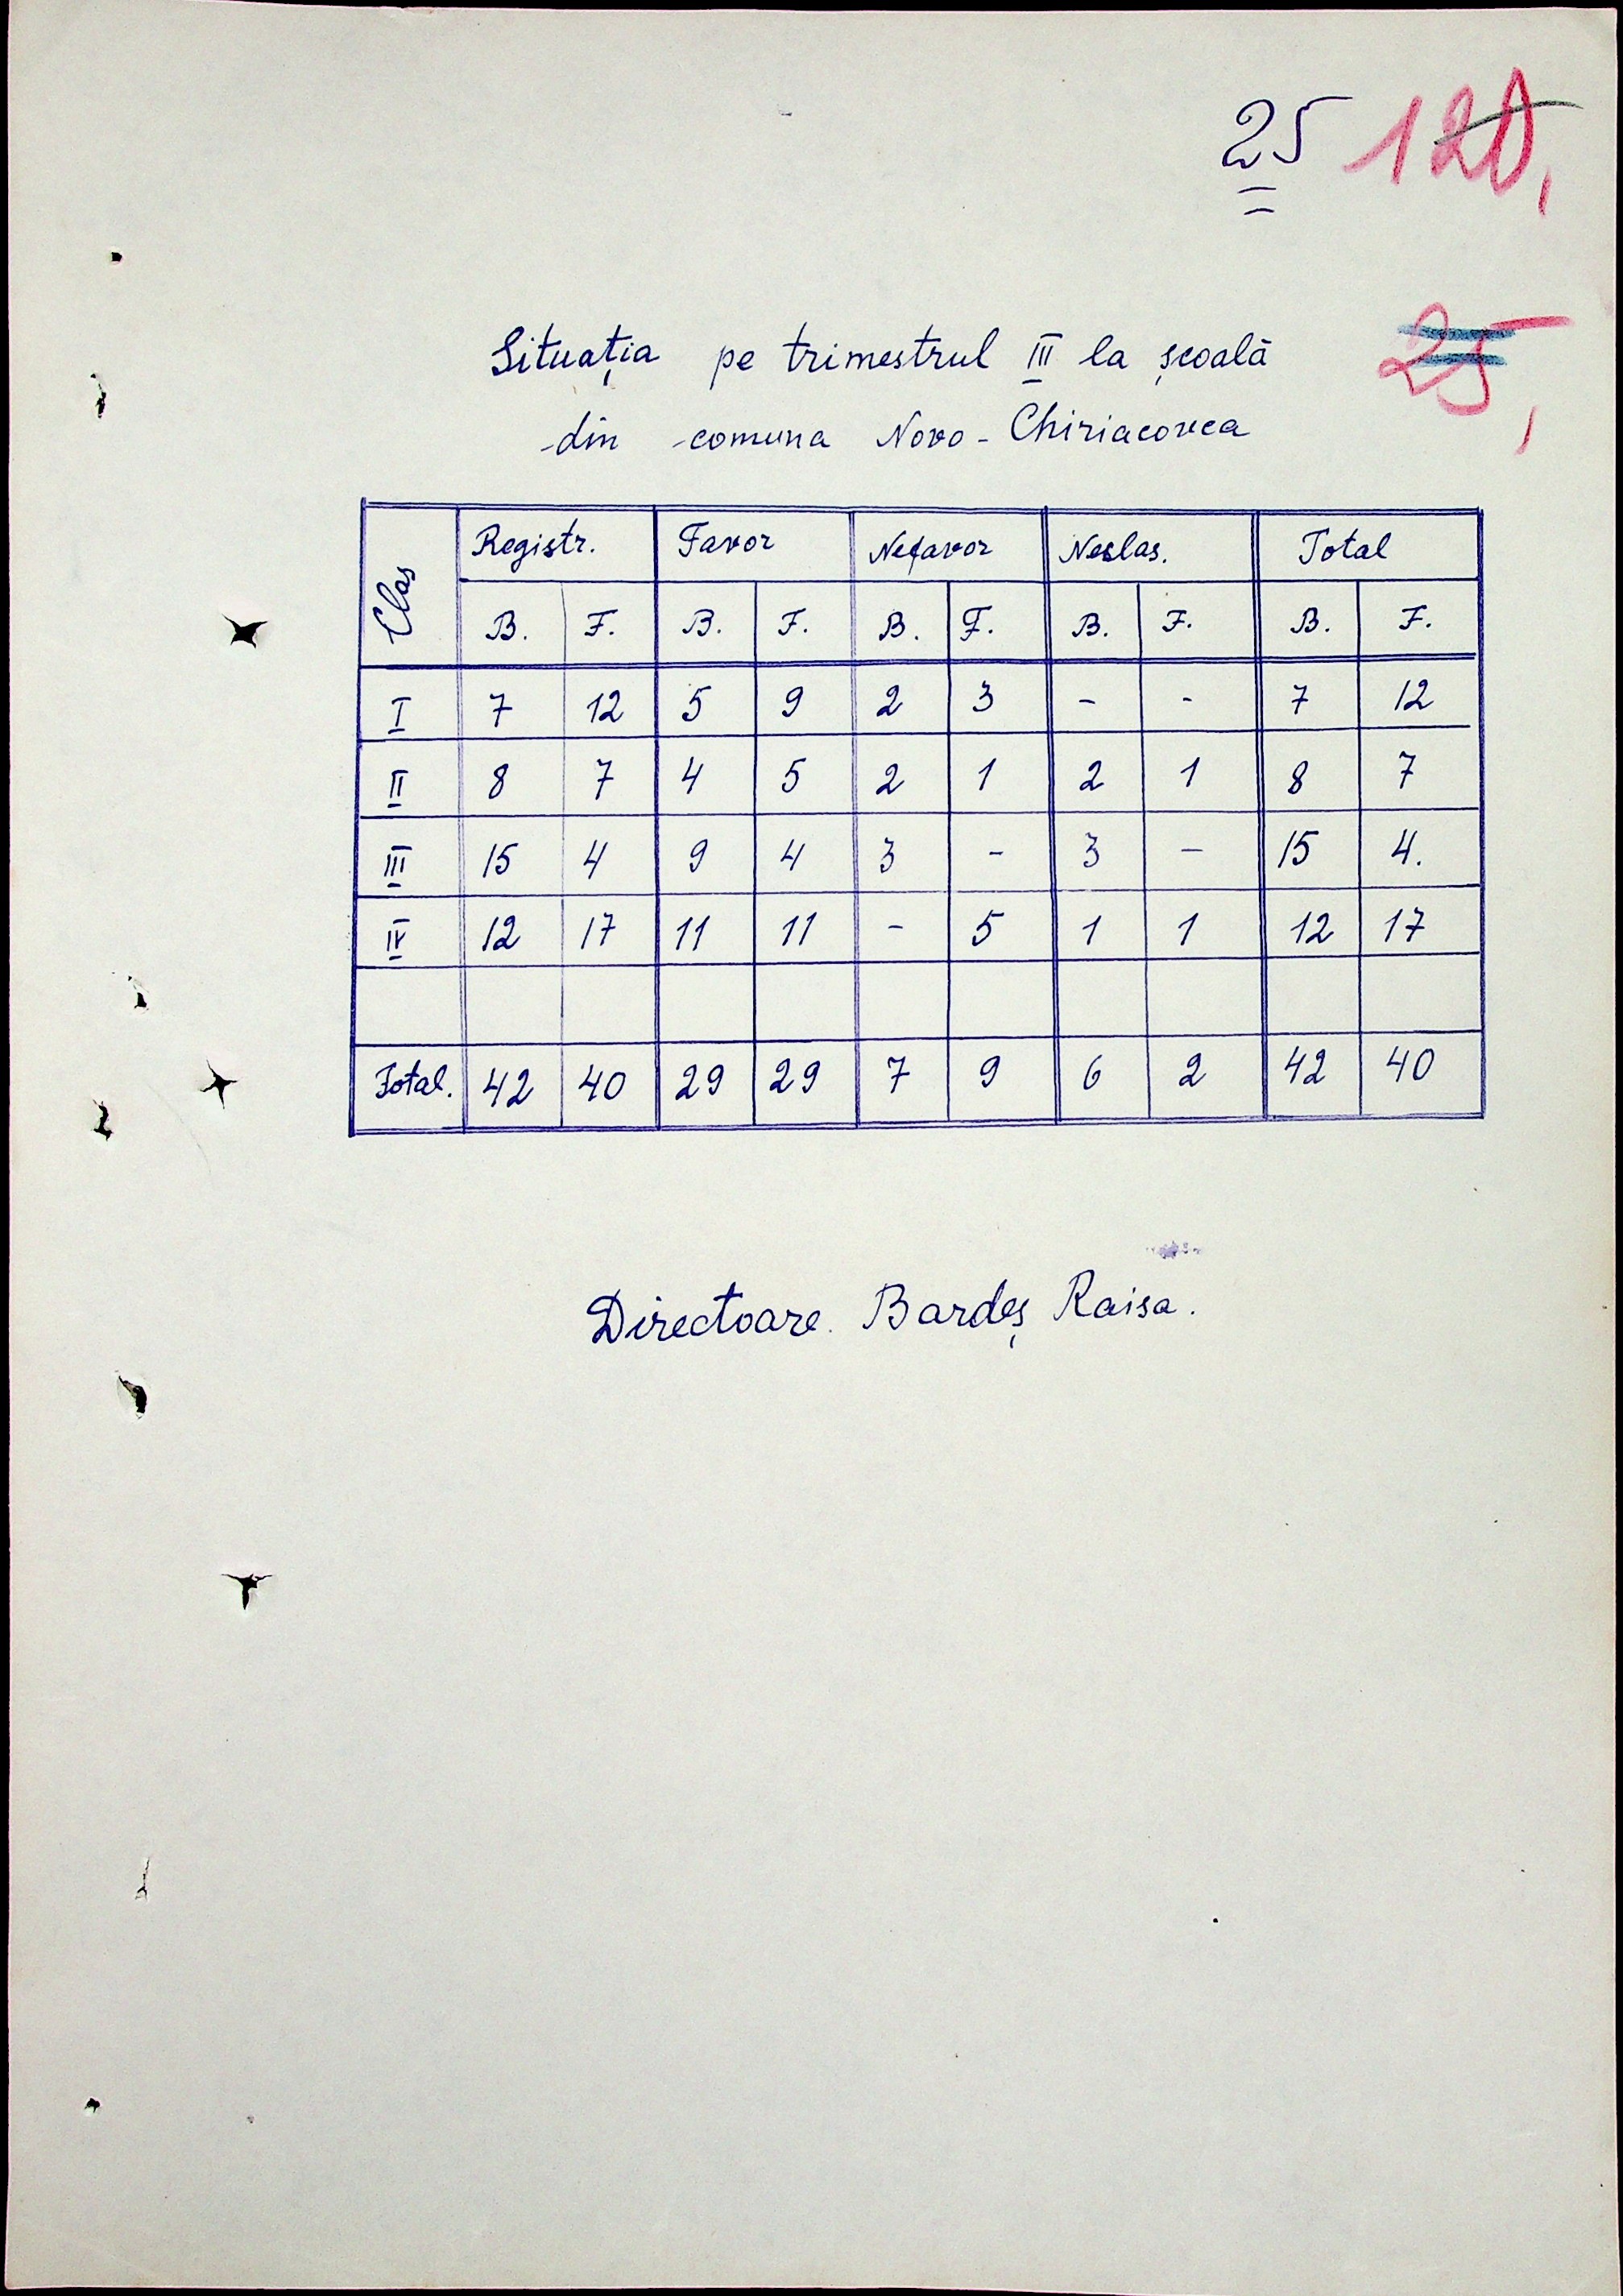 25 120,
25,
Situația pe trimestrul III la școală
din comuna Novo-Chiriacovca
Clas Registr. Favor Nefavor Neslas. Total
B. F. B. F. B. F. B. F. B. F.
I 7 12 5 9 2 3 - - 7 12
II 8 7 4 5 2 1 2 1 8 7
III 15 4 9 4 3 - 3 - 15 4.
IV 12 17 11 11 - 5 1 1 12 17
Total. 42 40 29 29 7 9 6 2 42 40
Directoare. Bardeș Raisa.